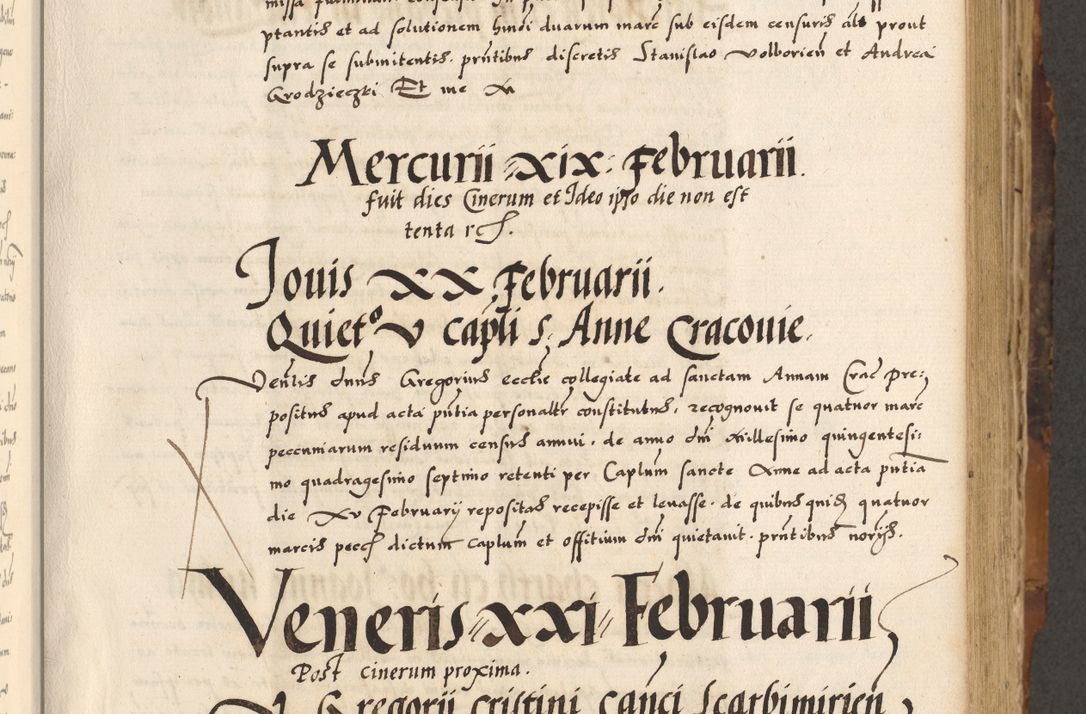 ptantis et ad solutionem hmoi duarum marc sub eisdem censuris als prout
supra se submitentis. pntibus discretis Stanislao Volborien et Andrea
Grodzieczki Et me
Mercurii xix Februarii.
fuit dies Cinerum et Ideo ipso die non est
tenta
Jouis xx Februarii.
Quieto v capli S. Anne Cracouie.
Venlis dnus Gregorius ecclie collegiate ad sanctam Annam Crac Pre:
positus apud acta pntia personaltr constitutus, recognouit se quatuor marc
peccuniarum residuum census annui. de anno dni Millesimo quingentesi:
mo quadragesimo septimo retenti per Caplum sancte Anne ad acta pntia
die xv Februarij repositas recepisse et leuasse. de quibus quid quatuor
marcis pecc dictum Caplum et offitium dni quietauit. pntibus norijs.
Veneris xxi Februarii
Post cinerum proxima.
Gregorii cristini canci Scarbimirien